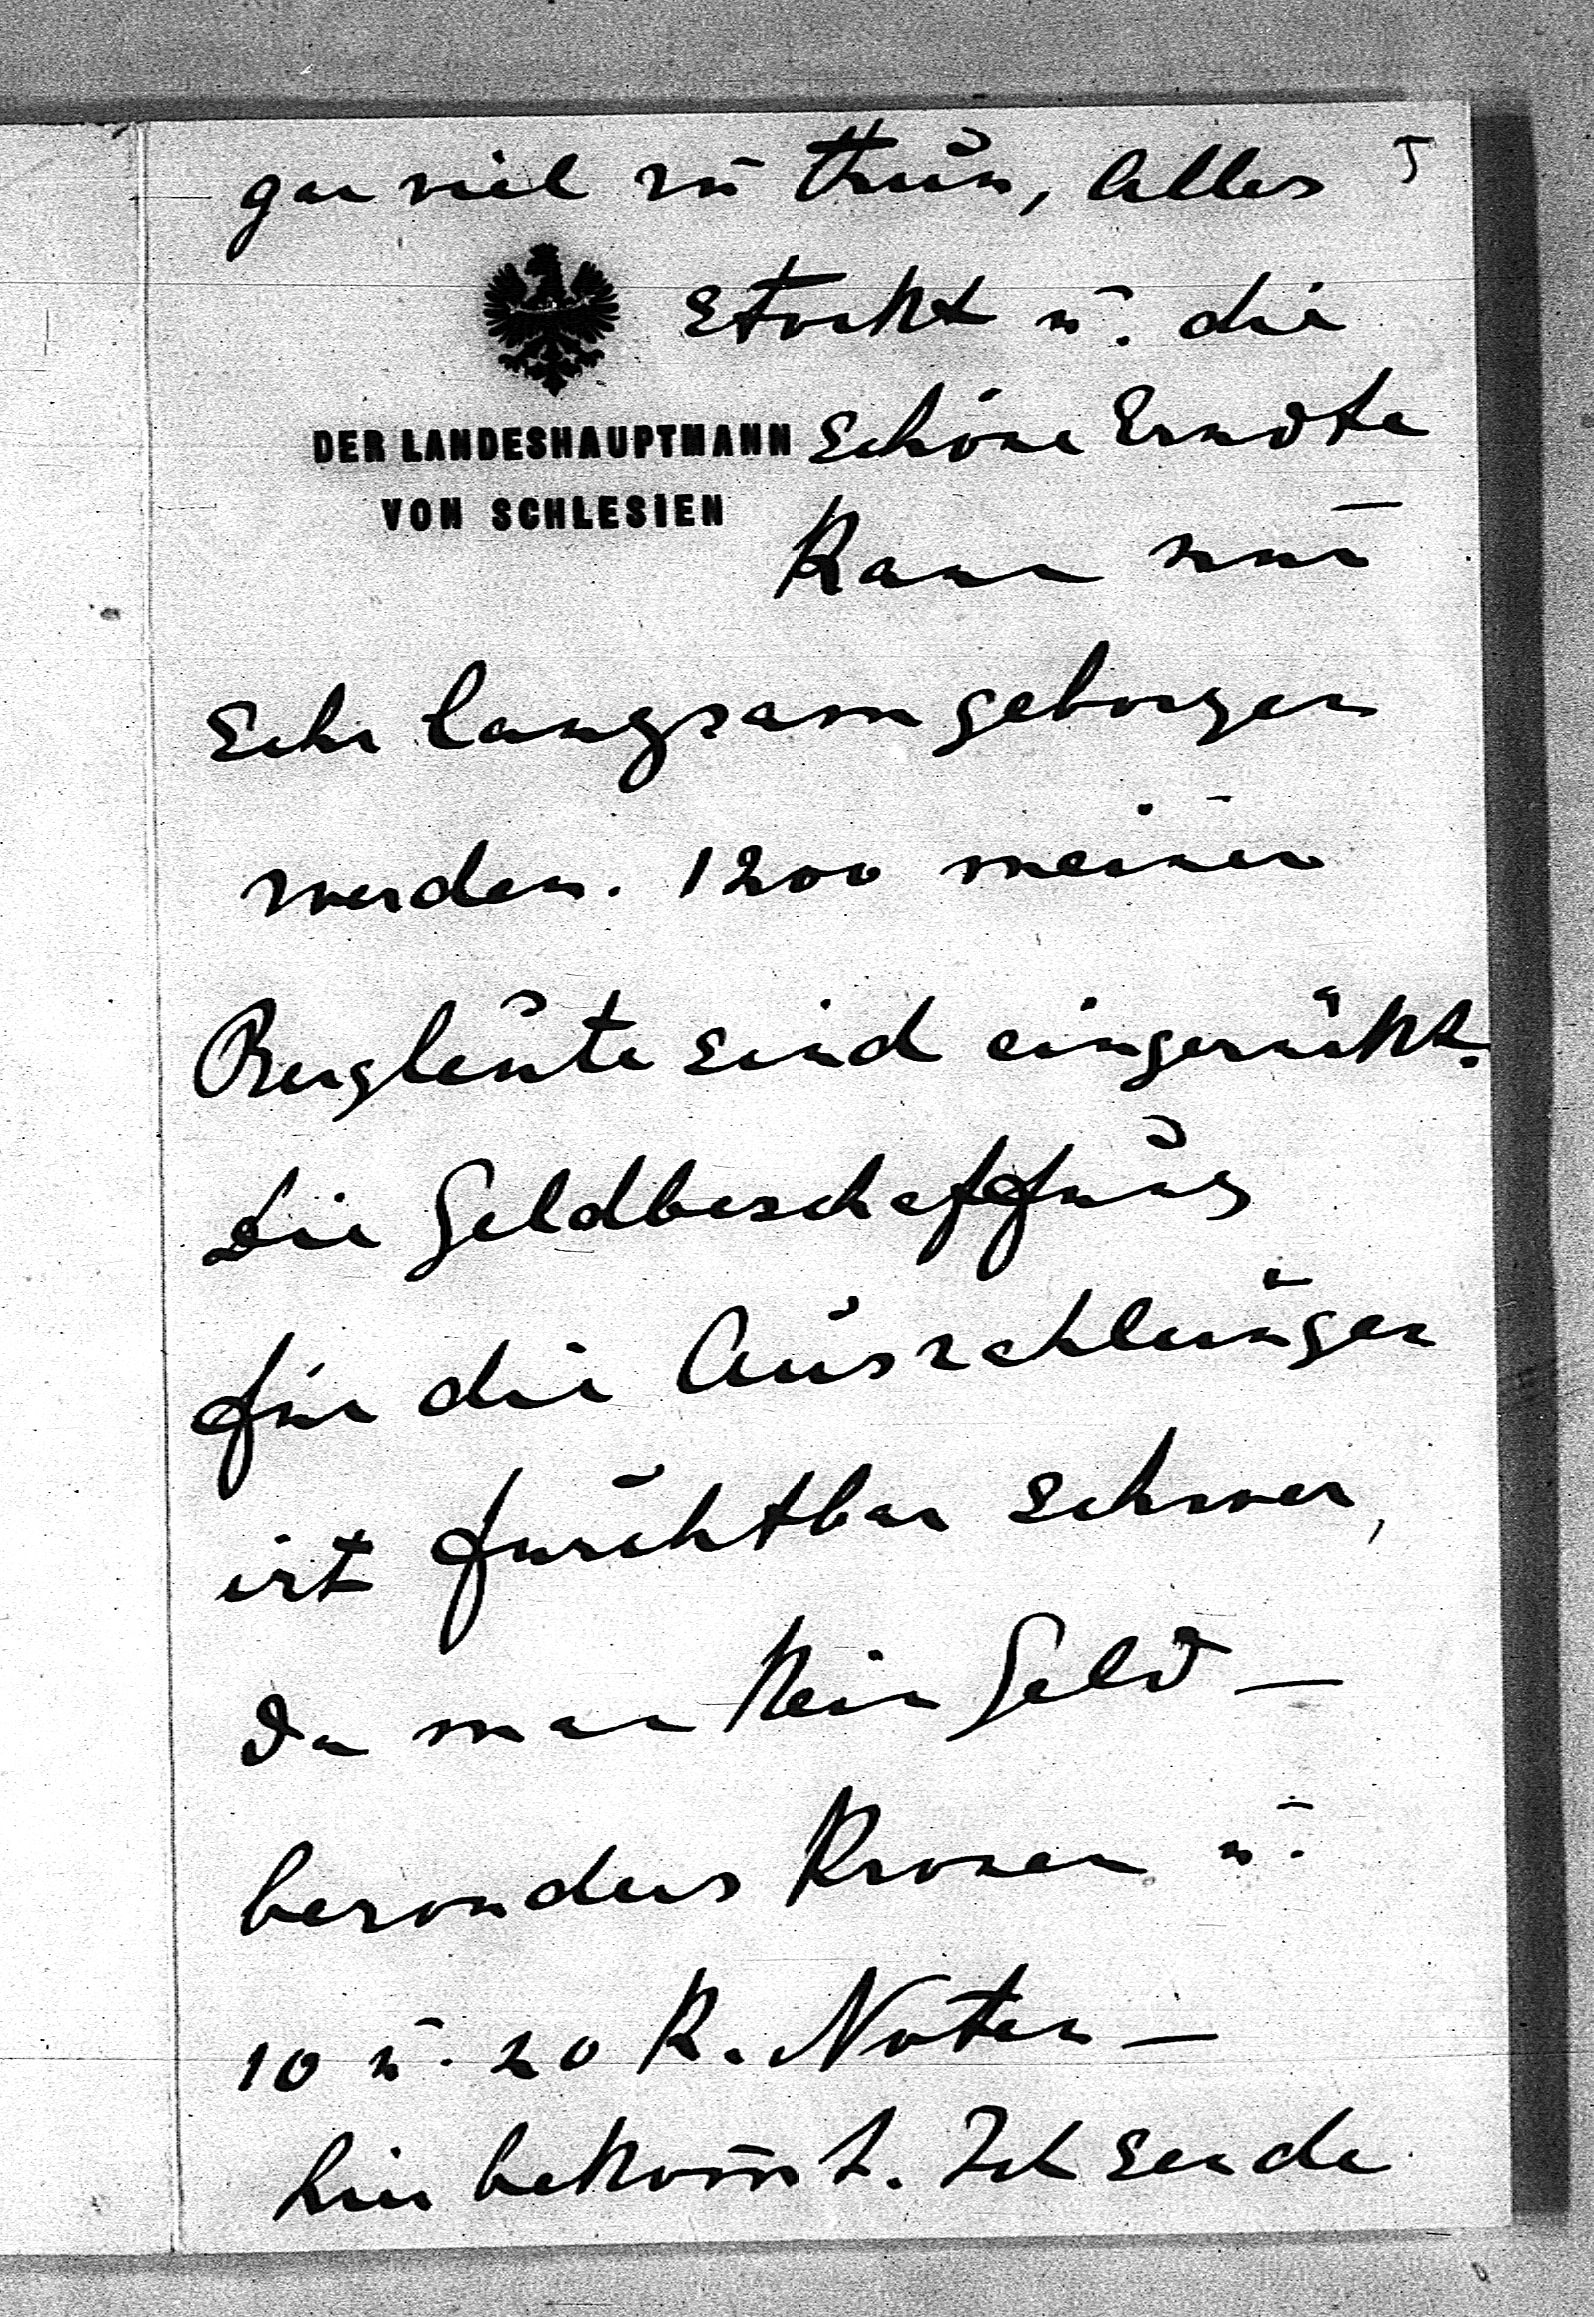 gar viel zu thun, Alles 5
stockt u. die
DER LANDESHAUPTMANN
VON SCHLESIEN
schöne Erndte
kann nur
sehr langsam geborgen
werden. 1200 meiner
Bergleute sind eingerückt.
Die Geldbeschaffung
für die Auszahlungen
ist furchtbar schwer,
da man kein Geld —
besonders Kronen u.
10 u. 20 K. Noten —
hier bekom̅t. Ich sende